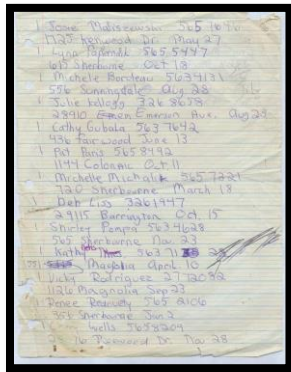 1 Josie Maliszewski 565 1646
1725 Kenwood Dr. May 27
1 Lynn 565 5447
615 Sherbourne Oct 18
1 Michele Bordeau 5634131
556 Sunningdale Aug 28
1 Julie Kellogg 326 8658
28910 Emerson Ave. Aug 29
1 Cathy Gubala 563 7642
436 Fairwood June 13
1 Pat Paris 565 8492
1144 Colonial Oct 11
1 Michelle Michalik 565 7221
720 Sherbourne March 18
1 Deb Liss 3261947
29115 Barrington Oct. 15
1 Shirley Pompra 5634628
565 Sherbourne Nov. 23
1 Kathy 563 71
Magnolia April 10
Vicky Rodriguez 2772032
1126 Magnolia Sep 23
1 Denee 565 2106
356 Sherbourne Jan 2
Wells 5658204
Dr. Nov 28